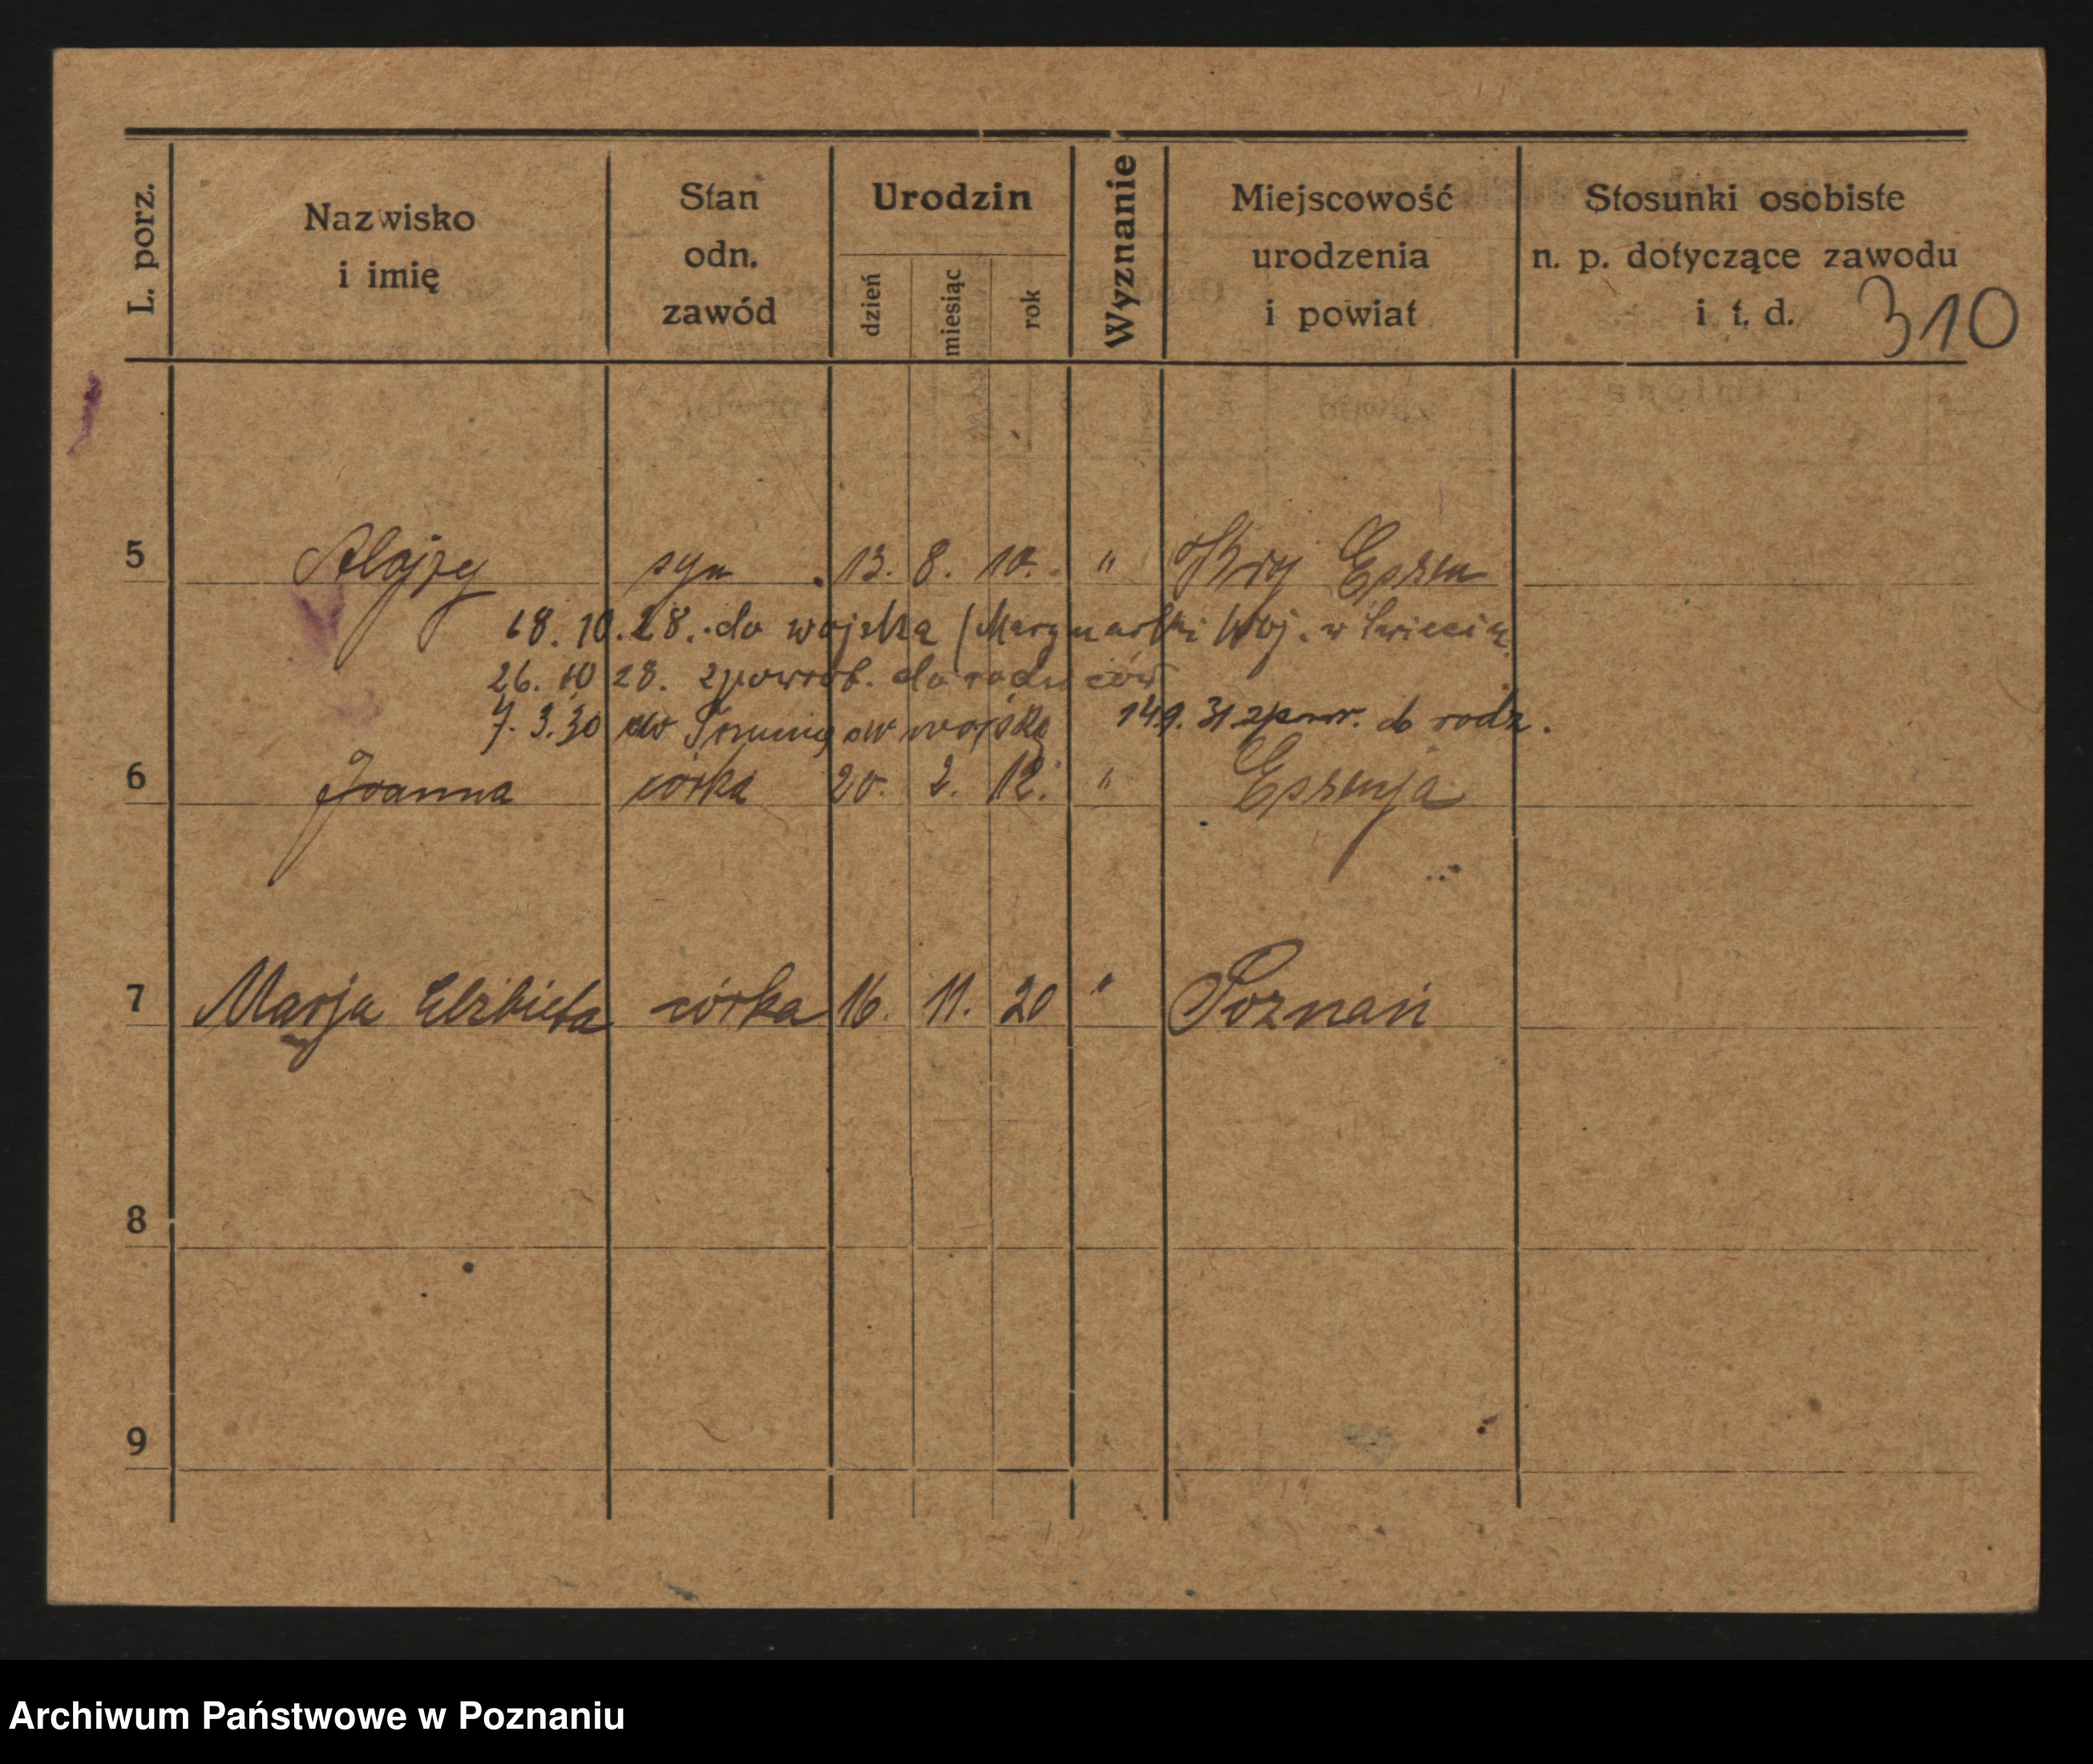 L. porz.
Nazwisko
i imię
Stan
odn.
zawód
Urodzin
dzień
miesiąc
rok
Wyznanie
Miejscowość
urodzenia
i powiat
Stosunki osobiste
n. p. dotyczące zawodu
i t. d.
310
5 Alojzy syn 13. 8. 10. " Essen
18. 10. 28. do wojska ( Woj. w Świeciu
26. 10 28. zpowrot. do rodziców
7. 3. 30 do wojska 14.9. 31 zpowr. do rodz.
6 Joanna córka 20. 2. 12. " Essenja
7 Marja Elżbieta córka 16. 11. 20 " Poznań
8
9
Archiwum Państwowe w Poznaniu